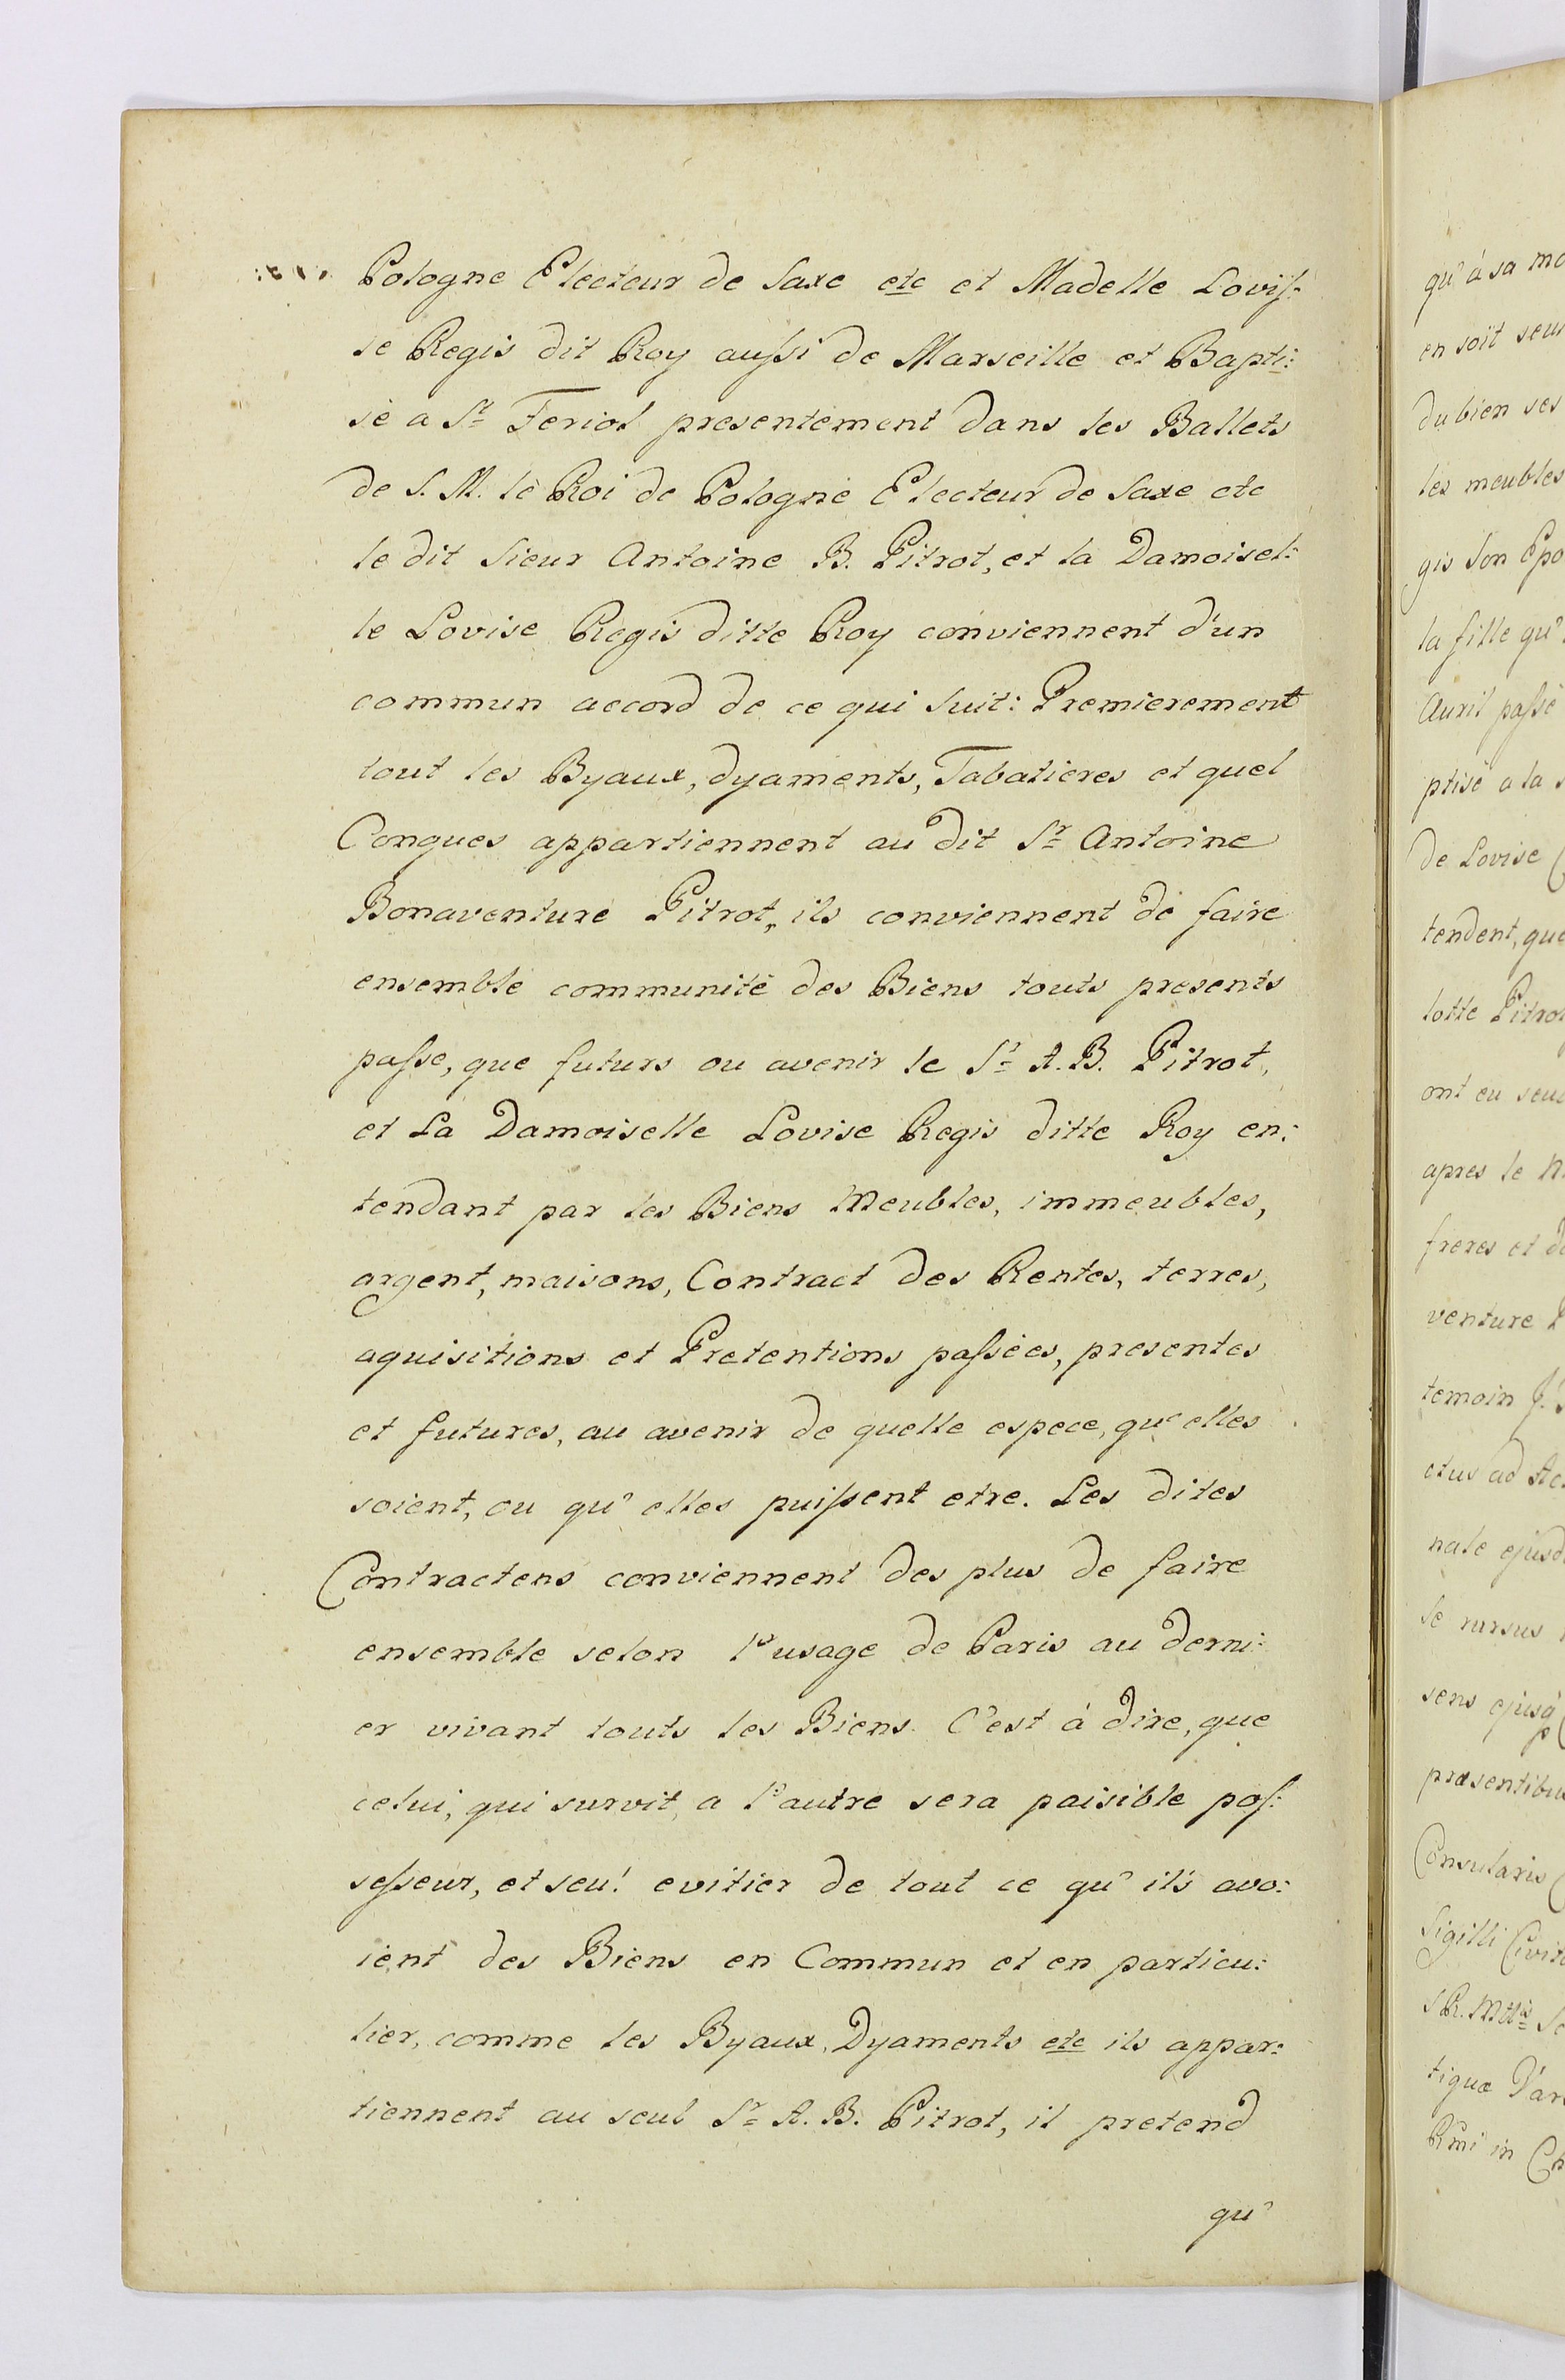 Pologne Electeur de Saxe etc et Madelle Lovis:
se Regis dit Roy aussi de Marseille et Bapti:
sè a Sr Feriol presentement dans les Ballets
de S. M. lè Roi de Pologne Electeur de Saxe etc
le dit Sieur Antoine B. Pitrot, et la Damoisel:
le Lovise Regis ditte Roy conviennent d'un
commun accord de ce qui suit: Premierement
tout les Byaux, dyaments, Tabatieres et quel
Conques appartiennent au dit Sr Antoine
Bonaventure Pitrot, ils conviennent de faire
ensemble communitè des Biens touts presents
passe, que futurs ou avenir le Sr A. B. Pitrot,
et La Damoiselle Lovise Regis ditte Roy en:
tendant par les Biens Meubles, immeubles,
argent, maisons, Contract des Rentes, terres,
aquisitions et Pretentions passèes, presentes
et futures, au avenir de quelle espece, qu'elles
soient, ou qu'elles puissent etre. Les dites
Contractens conviennent des plus de faire
ensemble selon l'usage de Paris au derni:
er vivant touts les Biens. C'est à dire, que
celui, qui survit, a l'autre sera paisible pos:
sesseur, et seul evitier de tout ce qu'ils avo:
ient des Biens en Commun et en particu:
lier, comme les Byaux, Dyaments etc ils appar:
tiennent au seul Sr A. B. Pitrot, il pretend
qu'
qu'à sa mo
en soit seu
du bien ses
les meubles
gis Son Epo
la fille qu'
Avril passè
ptisè a la
de Lovise
tendent, que
lotte Pitrot
ont eu seul
apres le M
freres et d
venture P
temoin J.
ctus ad Ac
nale ejusd
se rursus
sens ejusq
præsentibus
Consularis
Sigilli Civit
S R. Mttis S
tiquæ Var
Rmi in Ch